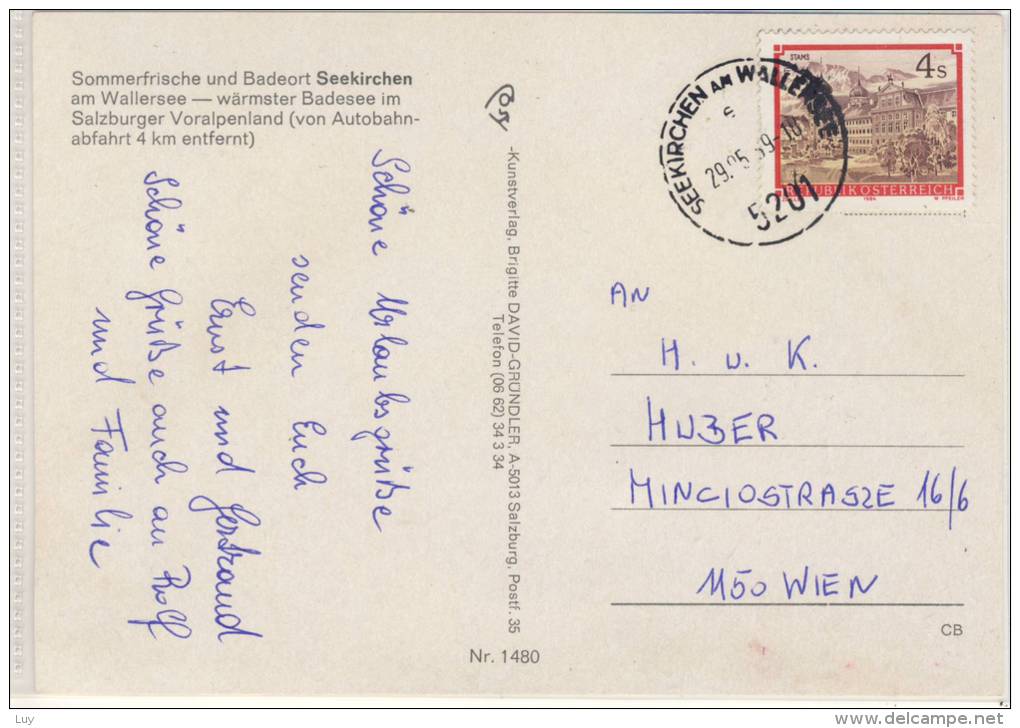 Sommerfrische und Badeort Seekirchen
am Wallersee — wärmster Badesee im
Salzburger Voralpenland (von Autobahn-
abfahrt 4 km entfernt)
Schöne Urlaubsgrüße
senden Euch
Ernst und Gertraud
Schöne Grüße auch an Rolf
und Familie
-Kunstverlag, Brigitte DAVID-GRÜNDLER, A-5013 Salzburg, Postf. 35
Telefon (06 62) 34 3 34
Nr. 1480
STAMS
4 s
REPUBLIK ÖSTERREICH
1984
W. PFEILER
SEEKIRCHEN AM WALLERSEE
5201
AN
H. u. K.
HUBER
MINCIOSTRASZE 16/6
1150 WIEN
CB
Luy
http://www.delcampe.net